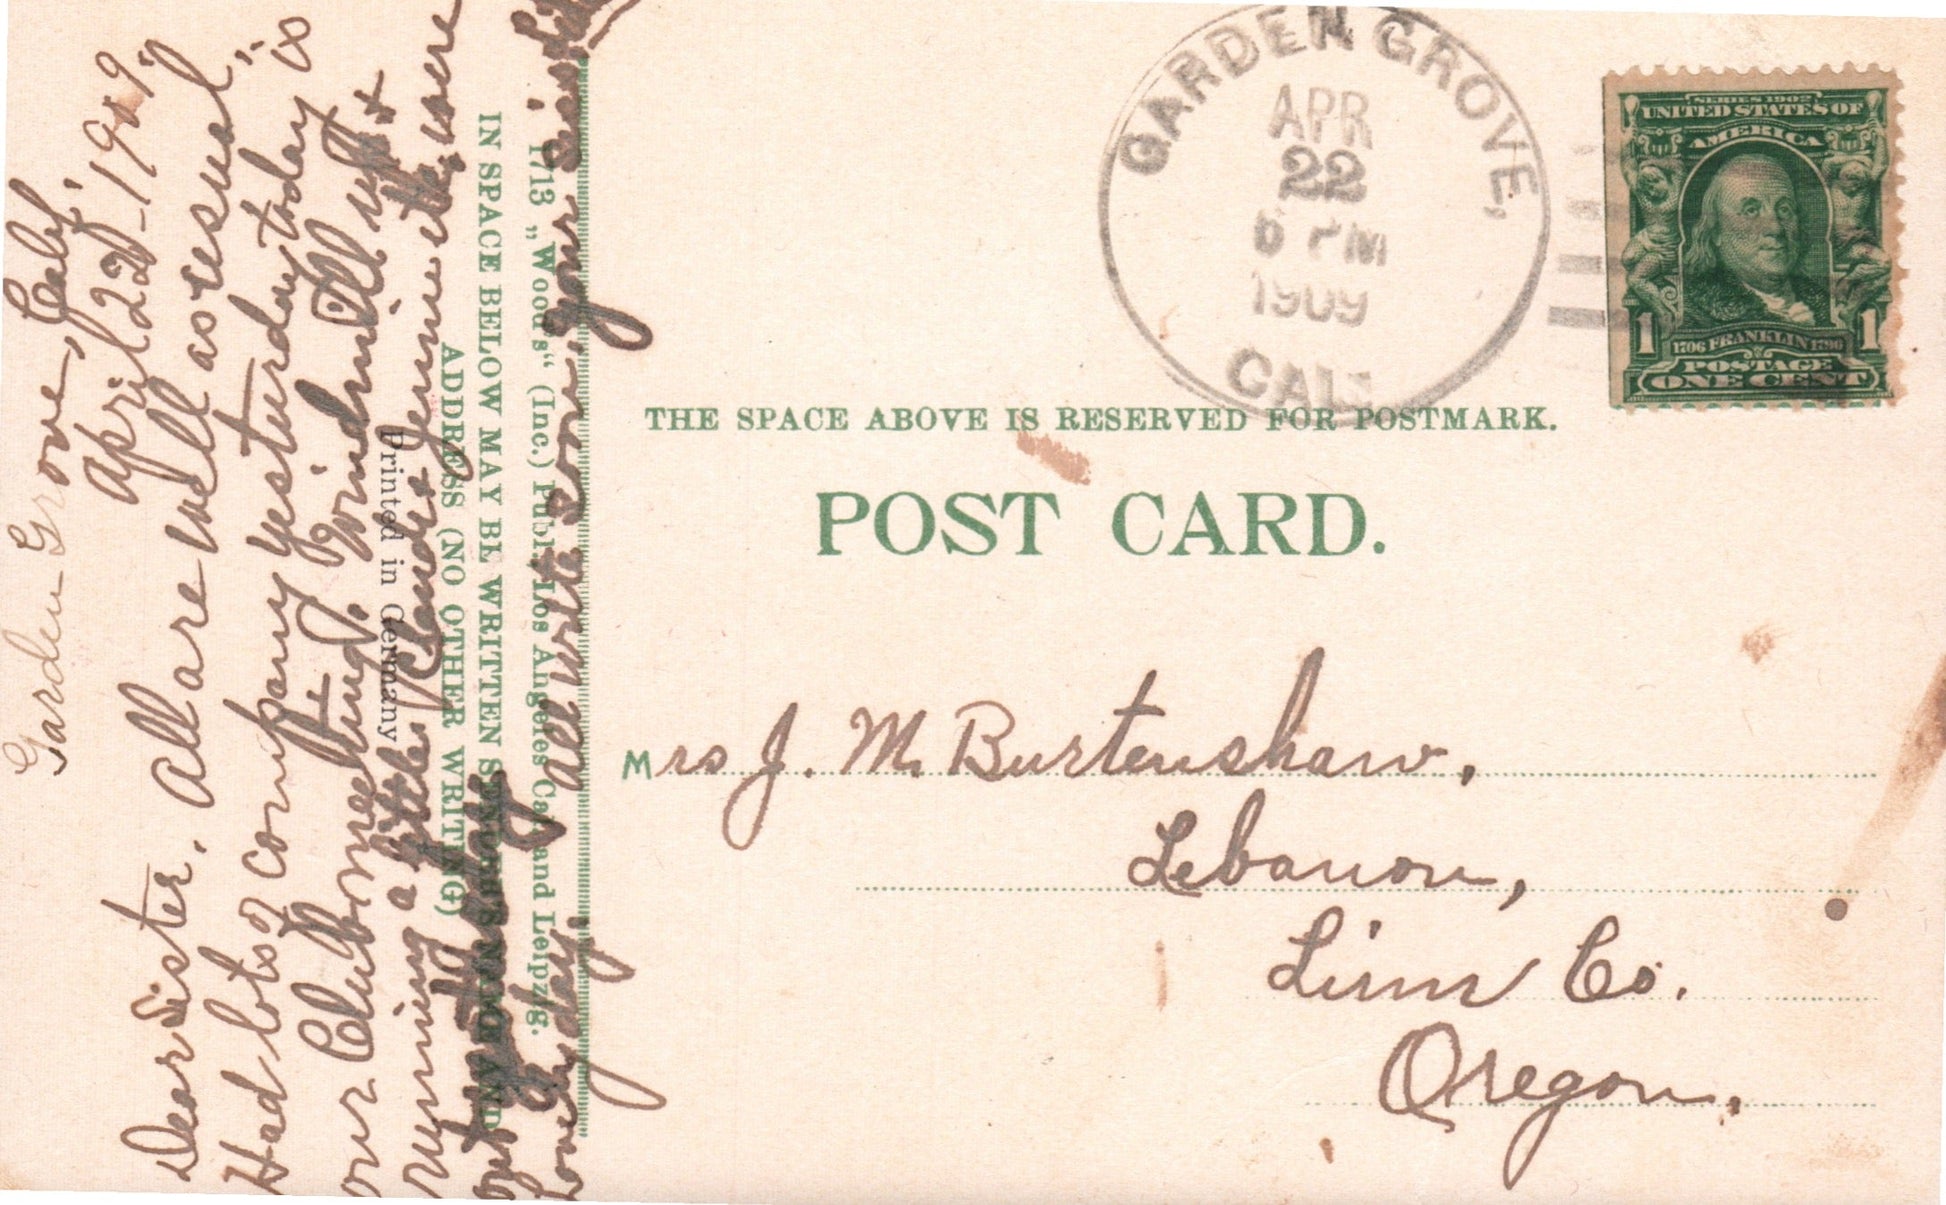 Garden Grove, Calif,
April 22nd - 1909,
Dear Sister. All are well as usual,
Had lots of company yesterday, today is
our Club meeting. Windmill up &
running a little, Claude & Jennie were
out yesterday
Lovely day. All write soon. your sister
1713 „Woods“ (Inc.) Publ., Los Angeles Cal. and Leipzig.
IN SPACE BELOW MAY BE WRITTEN SENDER'S NAME AND
ADDRESS (NO OTHER WRITING)
Printed in Germany
GARDEN GROVE,
APR
22
6 PM
1909
CAL.
SERIES 1902
UNITED STATES OF
AMERICA
1 1
1706 FRANKLIN 1790
POSTAGE
ONE CENT
THE SPACE ABOVE IS RESERVED FOR POSTMARK.
POST CARD.
Mrs J. M. Burtenshaw,
Lebanon,
Linn Co.
Oregon,